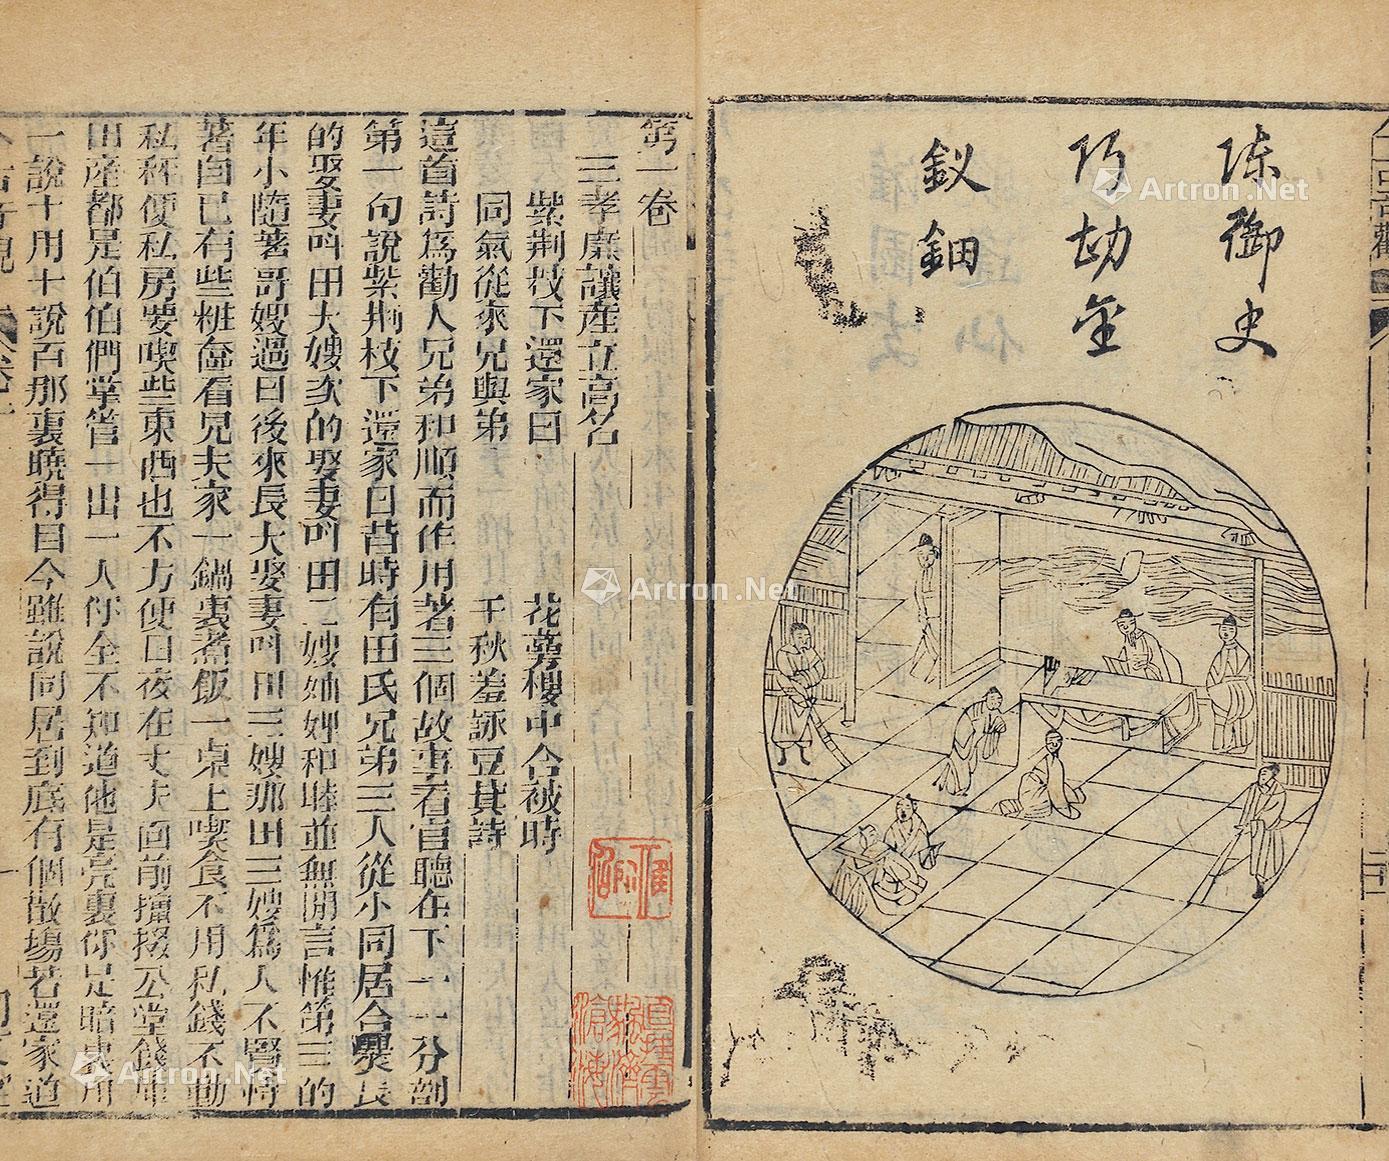 陈御史
巧勘金
釵鈿
第一卷
三孝廉讓産立高名
紫荆枝下還家日　花萼樓中合被時
同氣從來兄與弟　千秋羞詠豆萁詩
這首詩爲勸人兄弟和順而作用著三個故事看官聽在下一一分剖
第一句說紫荆枝下還家日昔時有田氏兄弟三人從小同居合爨長
的娶妻呌田大嫂次的娶妻呌田二嫂妯娌和睦並無閒言惟第三的
年小隨著哥嫂過日後來長大娶妻呌田三嫂那田三嫂爲人不賢恃
著自已有些粧奩看見夫家一鍋裏煮飯一桌上喫食不用私錢不動
私秤便私房要喫些東西也不方便日夜在丈夫面前攛掇公堂錢庫
田産都是伯伯們掌管一出一入你全不知道他是亮裏你是暗裏用
一說十用十說百那裏曉得目今雖說同居到底有個散塲若還家道
今古奇觀
卷一
一
Artron.Net
Artron.Net
Artron.Net
Artron.Net